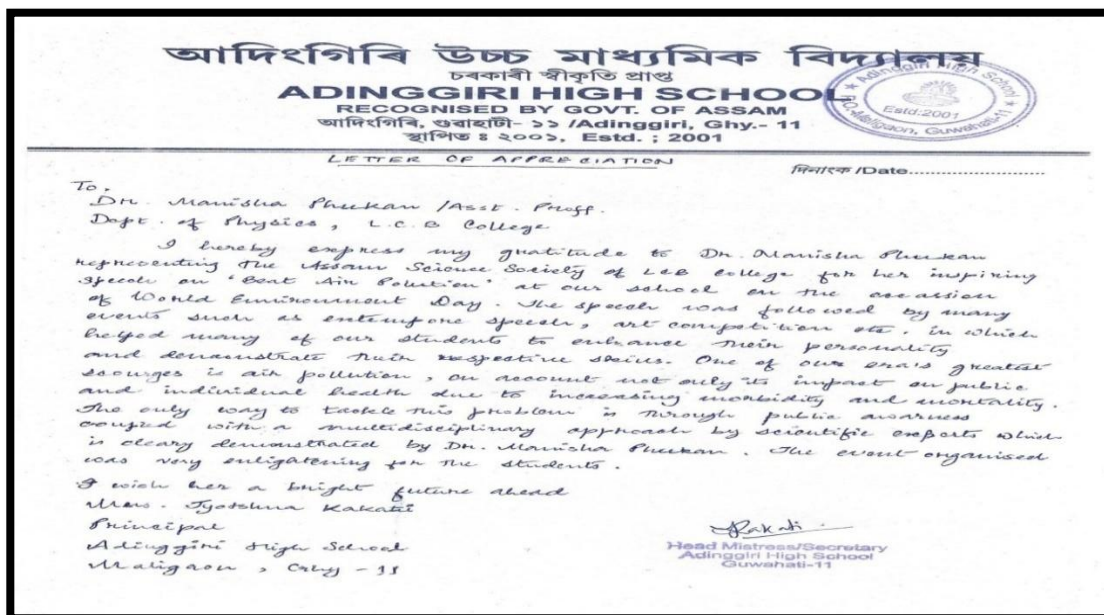 আদিংগিৰি উচ্চ মাধ্যমিক বিদ্যালয়
চৰকাৰী স্বীকৃতি প্ৰাপ্ত
ADINGGIRI HIGH SCHOOL
RECOGNISED BY GOVT. OF ASSAM
আদিংগিৰি, গুৱাহাটী- ১১ /Adinggiri, Ghy.- 11
স্থাপিত ঃ ২০০১, Estd. ; 2001
Adinggiri High School
Estd:2001
P.O.-Maligaon, Guwahati-11
LETTER OF APPRECIATION
দিনাংক /Date........................
To,
Dr. Manisha Phukan /Asst. Proff.
Dept. of Physics, L.C.B College
I hereby express my gratitude to Dr. Manisha Phukan
representing The Assam Science Society of LCB College for her inspiring
speech on "Beat Air Pollution" at our school on the occassion
of World Environment Day. The speech was followed by many
events such as extempore speech, art competition etc. in which
helped many of our students to enhance their personality
and demonstrate their respective skills. One of our era's greatest
scourges is air pollution, on account not only its impact on public
and individual health due to increasing morbidity and mortality.
The only way to tackle this problem is through public awarness
coupled with a multidisciplinary approach by scientific experts which
is cleary demonstrated by Dr. Manisha Phukan. The event organised
was very enlightening for the students.
I wish her a bright future ahead
Mrs. Jyotshna Kakati
Principal
Adinggiri High School
Maligaon, Ghy - 11
Kakati
Head Mistress/Secretary
Adinggiri High School
Guwahati-11